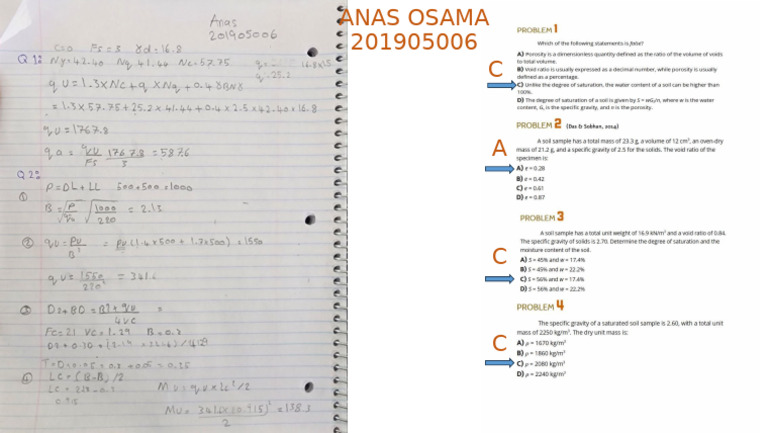 Anas
201905006
C=0 Fs=3 γd=16.8
Q1: Nγ=42.40 Nq 41.44 Nc=57.75
q=
16.8x1.5
q=25.2
qU=1.3xNc+q xNq+0.4γBNγ
=1.3x57.75+25.2x41.44+0.4x2.5x42.40x16.8
qU=1767.8
qa= qU/Fs 1767.8/3 = 587.6
Q2:
① P=DL+LL 500+500=1000
B=√P/qa √1000/220 = 2.13
② qU=PU/B² = PU(1.4x500+1.7x500)=1550
qU=1550/230² =341.
③
Fc=21 Vc=1.29 B=0.2
④ LC=(B-B)/2
MU=qUxLc²/2
2
ANAS OSAMA
201905006
PROBLEM 1
Which of the following statements is false?
A) Porosity is a dimensionless quantity defined as the ratio of the volume of voids
to total volume.
B) Void ratio is usually expressed as a decimal number, while porosity is usually
defined as a percentage.
C
C) Unlike the degree of saturation, the water content of a soil can be higher than
100%.
D) The degree of saturation of a soil is given by S = wGs/n, where w is the water
content, Gs is the specific gravity, and n is the porosity.
PROBLEM 2 (Das & Sobhan, 2014)
A soil sample has a total mass of 23.3 g, a volume of 12 cm³, an oven-dry
mass of 21.2 g, and a specific gravity of 2.5 for the solids. The void ratio of the
specimen is:
A
A) e = 0.28
B) e = 0.42
C) e = 0.61
D) e = 0.87
PROBLEM 3
A soil sample has a total unit weight of 16.9 kN/m³ and a void ratio of 0.84.
The specific gravity of solids is 2.70. Determine the degree of saturation and the
moisture content of the soil.
C
A) S = 45% and w = 17.4%
B) S = 45% and w = 22.2%
C) S = 56% and w = 17.4%
D) S = 56% and w = 22.2%
PROBLEM 4
The specific gravity of a saturated soil sample is 2.60, with a total unit
mass of 2250 kg/m³. The dry unit mass is:
C
A) ρ = 1670 kg/m³
B) ρ = 1860 kg/m³
C) ρ = 2080 kg/m³
D) ρ = 2240 kg/m³